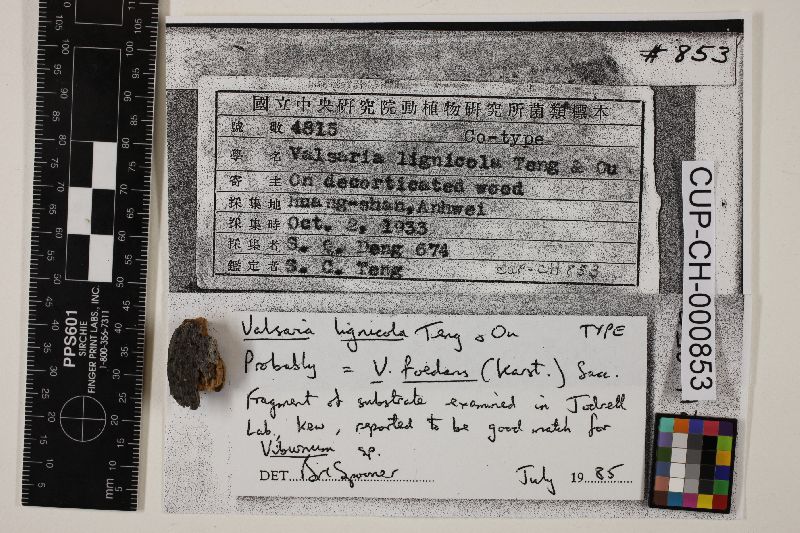 # 853
國立中央硏究院動植物硏究所菌類標本
號數 4815 Co-type
學名 Valsaria lignicola Teng & Ou
寄主 On decorticated wood
採集地 Huang-shan, Anhwei
採集時 Oct. 2, 1933
採集者 S. C. Deng 674
鑑定者 S. C. Teng CUP-CH 853
CUP-CH-000853
Valsaria lignicola Teng & Ou TYPE
Probably = V. foedans (Karst.) Sacc.
Fragment of substrate examined in Jodrell
Lab, Kew, reported to be good match for
Viburnum sp.
DET. BM Spooner July 1985
PPS601
SIRCHIE
FINGER PRINT LABS, INC.
1-800-356-7311
mm